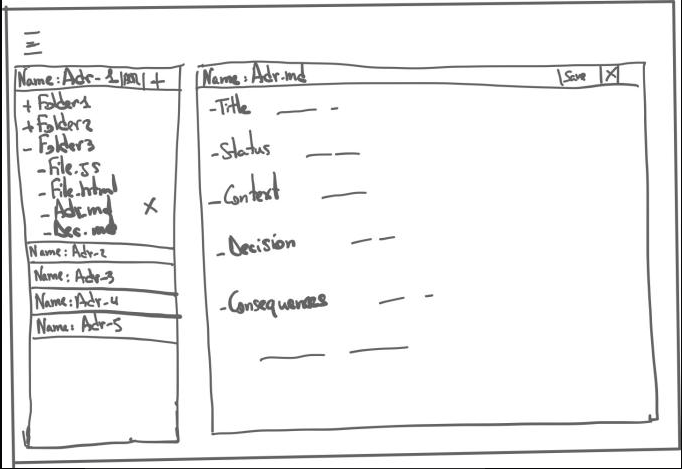 Name: Adr-1 +
+ Folder1
+ Folder2
- Folder3
- File.JS
- File.html
- Adr.md X
- Dec.md
Name: Adr-2
Name: Adr-3
Name: Adr-4
Name: Adr-5
Name: Adr.md Save X
- Title
- Status
- Context
- Decision
- Consequences